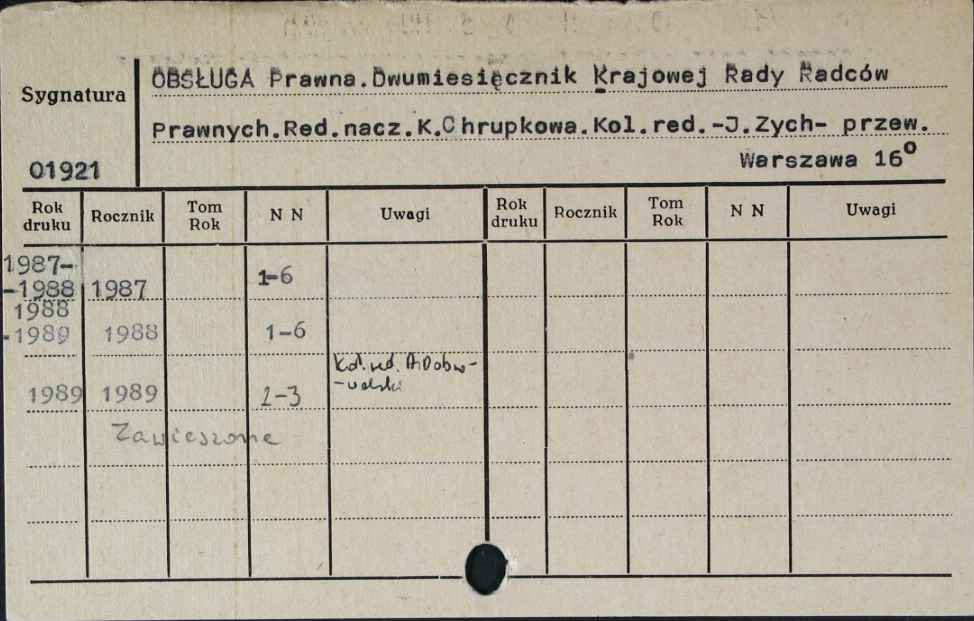 OBSŁUGA Prawna.Dwumiesięcznik Krajowej Rady Radców
Sygnatura
Prawnych.Red.nacz.K.Chrupkowa.Kol.red.-J.Zych- przew.
01921
Warszawa 16⁰
Rok druku Rocznik Tom Rok N N Uwagi Rok druku Rocznik Tom Rok N N Uwagi
1987-
-1988 1987 1-6
1988
-1989 1988 1-6
Kol. red. A.Dobro-
-wolski
1989 1989 2-3
Zawieszone